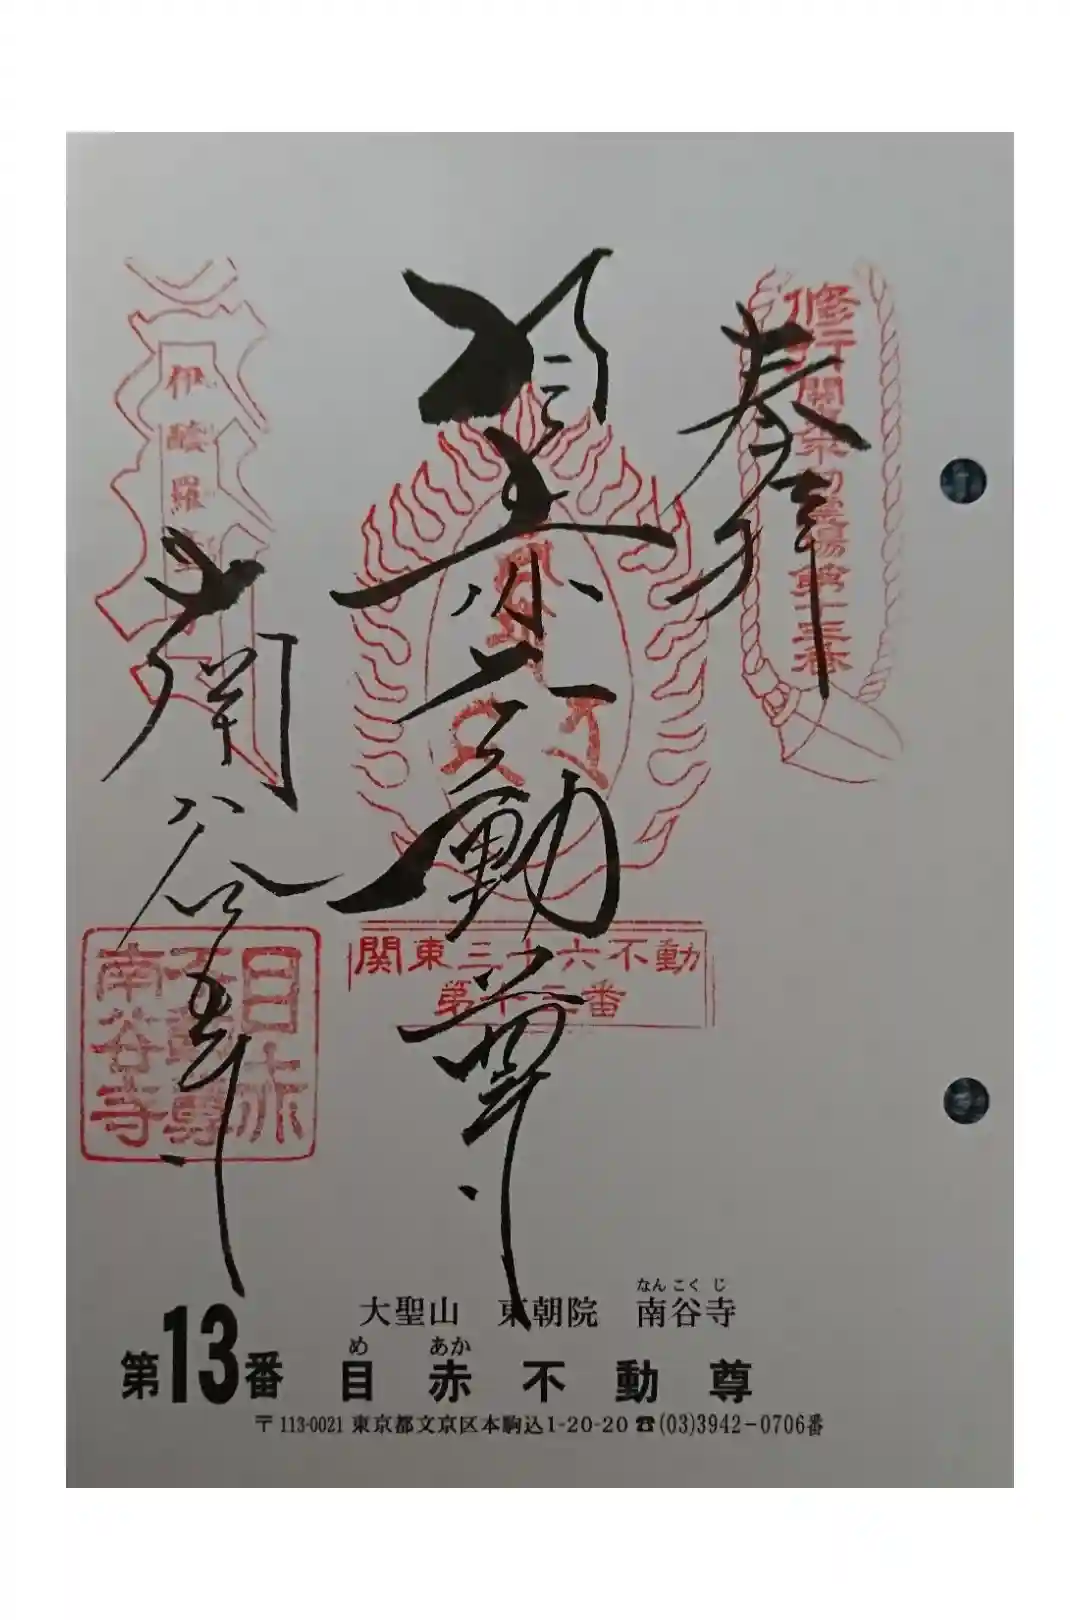 奉拝
修行関東不動霊場第十三番
目赤不動尊
関東三十六不動
第十三番
伊醯羅
南谷寺
目赤
不動尊
南谷寺
大聖山 東朝院 南谷寺
なんこくじ
第13番 目赤不動尊
め あか
〒113-0021 東京都文京区本駒込1-20-20 ☎(03)3942-0706番